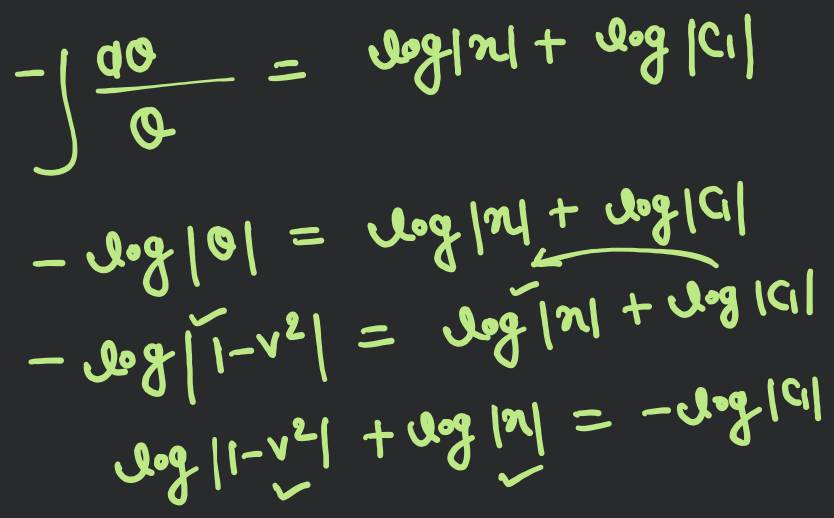 -∫ dθ/θ = log|x| + log|C₁|
- log|θ| = log|x| + log|C₁|
- log|1-v²| = log|x| + log|C₁|
log|1-v²| + log|x| = -log|C₁|